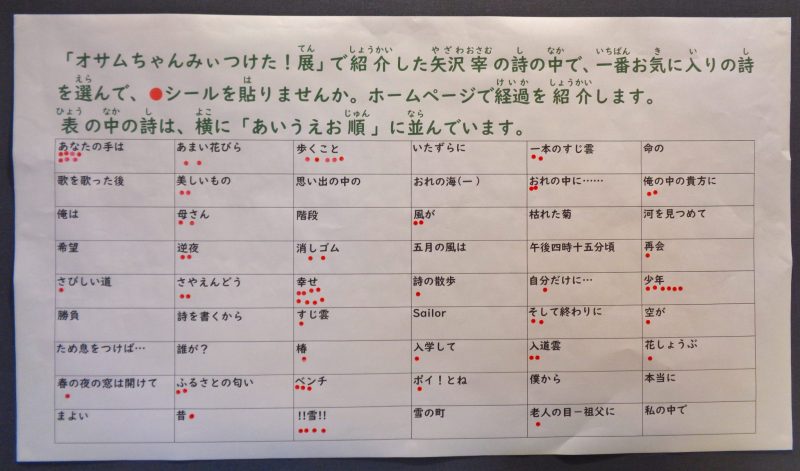 「オサムちゃんみぃつけた！展」で紹介した矢沢宰の詩の中で、一番お気に入りの詩
を選んで、●シールを貼りませんか。ホームページで経過を紹介します。
表の中の詩は、横に「あいうえお順」に並んでいます。
あなたの手は あまい花びら 歩くこと いたずらに 一本のすじ雲 命の
歌を歌った後 美しいもの 思い出の中の おれの海(一) おれの中に…… 俺の中の貴方に
俺は 母さん 階段 風が 枯れた菊 河を見つめて
希望 逆夜 消しゴム 五月の風は 午後四時十五分頃 再会
さびしい道 さやえんどう 幸せ 詩の散歩 自分だけに… 少年
勝負 詩を書くから すじ雲 Sailor そして終わりに 空が
ため息をつけば… 誰が？ 椿 入学して 入道雲 花しょうぶ
春の夜の窓は開けて ふるさとの匂い ベンチ ポイ！とね 僕から 本当に
まよい 昔 !!雪!! 雪の町 老人の目－祖父に 私の中で